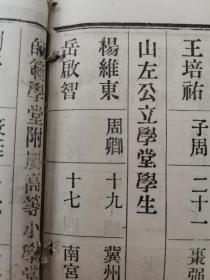 王培祐 子周 二十一 棗強
山左公立學堂學生
楊維東 周卿 十九 冀州
岳啟智 十七 南宮
師範學堂附屬高等小學堂